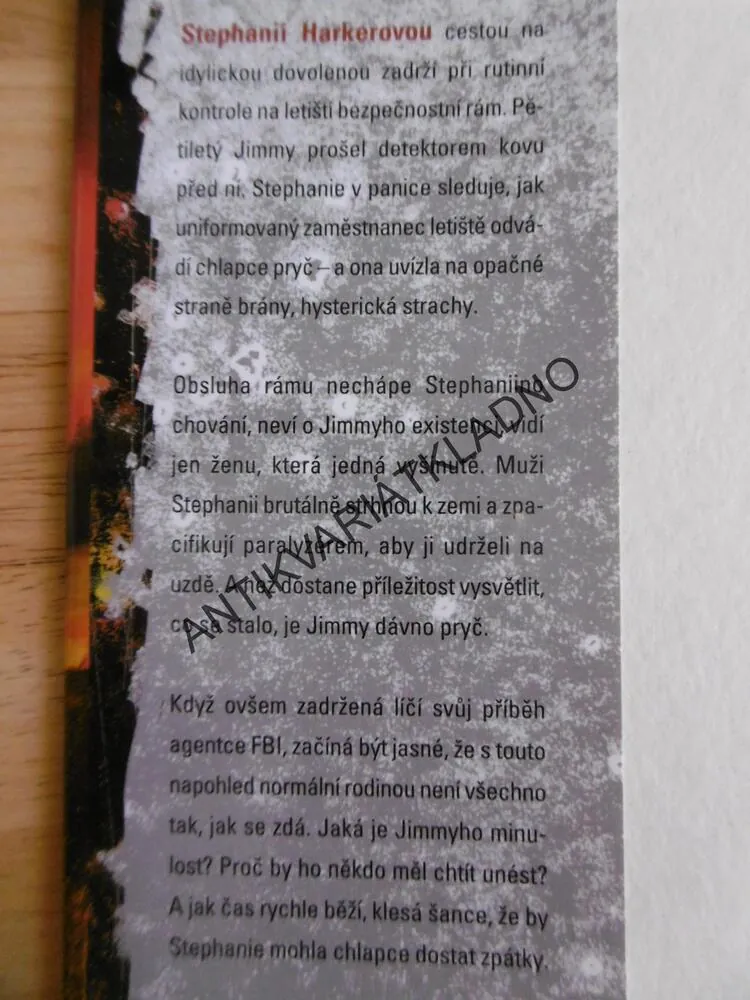 Stephanii Harkerovou cestou na
idylickou dovolenou zadrží při rutinní
kontrole na letišti bezpečnostní rám. Pě-
tiletý Jimmy prošel detektorem kovu
před ní. Stephanie v panice sleduje, jak
uniformovaný zaměstnanec letiště odvá-
dí chlapce pryč – a ona uvízla na opačné
straně brány, hysterická strachy.
Obsluha rámu nechápe Stephaniino
chování, neví o Jimmyho existenci, vidí
jen ženu, která jedná vyšinutě. Muži
Stephanii brutálně strhnou k zemi a zpa-
cifikují paralyzérem, aby ji udrželi na
uzdě. A než dostane příležitost vysvětlit,
co se stalo, je Jimmy dávno pryč.
Když ovšem zadržená líčí svůj příběh
agentce FBI, začíná být jasné, že s touto
napohled normální rodinou není všechno
tak, jak se zdá. Jaká je Jimmyho minu-
lost? Proč by ho někdo měl chtít unést?
A jak čas rychle běží, klesá šance, že by
Stephanie mohla chlapce dostat zpátky.
ANTIKVARIÁTKLADNO